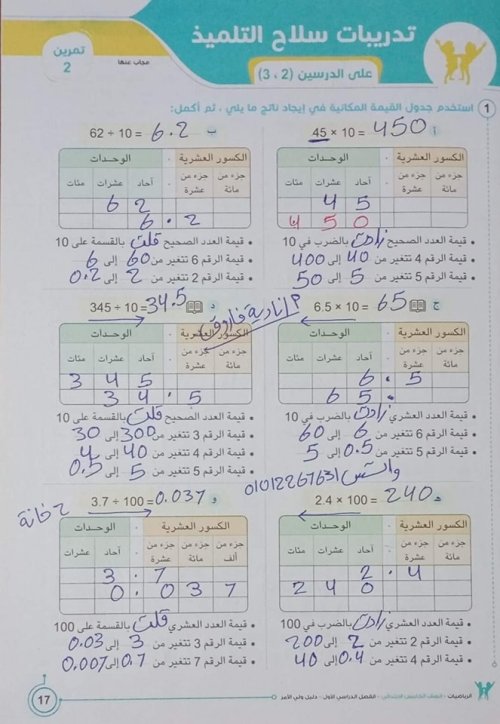 تدريبات سلاح التلميذ
على الدرسين (2 ، 3)
مجاب عنها
تمرين 2
1 استخدم جدول القيمة المكانية في إيجاد ناتج ما يلي ، ثم أكمل:
أ 45 × 10 = 450
الوحدات . الكسور العشرية
مئات عشرات آحاد . جزء من عشرة جزء من مائة
4 5
4 5 0
• قيمة العدد الصحيح زادت بالضرب في 10
• قيمة الرقم 4 تتغير من 40 إلى 400
• قيمة الرقم 5 تتغير من 5 إلى 50
ب 62 ÷ 10 = 6.2
الوحدات . الكسور العشرية
مئات عشرات آحاد . جزء من عشرة جزء من مائة
6 2
6 . 2
• قيمة العدد الصحيح قلت بالقسمة على 10
• قيمة الرقم 6 تتغير من 60 إلى 6
• قيمة الرقم 2 تتغير من 2 إلى 0.2
ج 6.5 × 10 = 65
الوحدات . الكسور العشرية
مئات عشرات آحاد . جزء من عشرة جزء من مائة
6 . 5
6 5 .
• قيمة العدد العشري زادت بالضرب في 10
• قيمة الرقم 6 تتغير من 6 إلى 60
• قيمة الرقم 5 تتغير من 0.5 إلى 5
د 345 ÷ 10 = 34.5
م/نادية فاروق
الوحدات . الكسور العشرية
مئات عشرات آحاد . جزء من عشرة جزء من مائة
3 4 5
3 4 . 5
• قيمة العدد الصحيح قلت بالقسمة على 10
• قيمة الرقم 3 تتغير من 300 إلى 30
• قيمة الرقم 4 تتغير من 40 إلى 4
• قيمة الرقم 5 تتغير من 5 إلى 0.5
واتس 01012267631
ه 2.4 × 100 = 240
الوحدات . الكسور العشرية
مئات عشرات آحاد . جزء من عشرة جزء من مائة
2 . 4
2 4 0
• قيمة العدد العشري زادت بالضرب في 100
• قيمة الرقم 2 تتغير من 2 إلى 200
• قيمة الرقم 4 تتغير من 0.4 إلى 40
و 3.7 ÷ 100 = 0.037
2 خانة
الوحدات . الكسور العشرية
عشرات آحاد . جزء من عشرة جزء من مائة جزء من ألف
3 . 7
0 . 0 3 7
• قيمة العدد العشري قلت بالقسمة على 100
• قيمة الرقم 3 تتغير من 3 إلى 0.03
• قيمة الرقم 7 تتغير من 0.7 إلى 0.007
الرياضيات - الصف الخامس الابتدائي - الفصل الدراسي الأول - دليل ولي الأمر
17